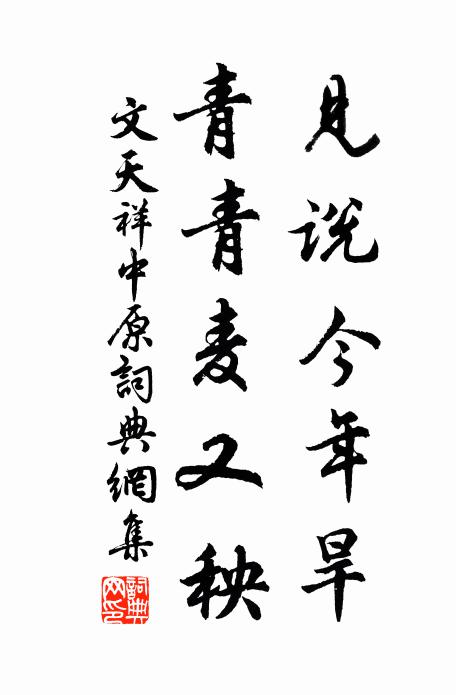 見説今年旱
青青麦又秧
文天祥中原詞典網集
詞典网印